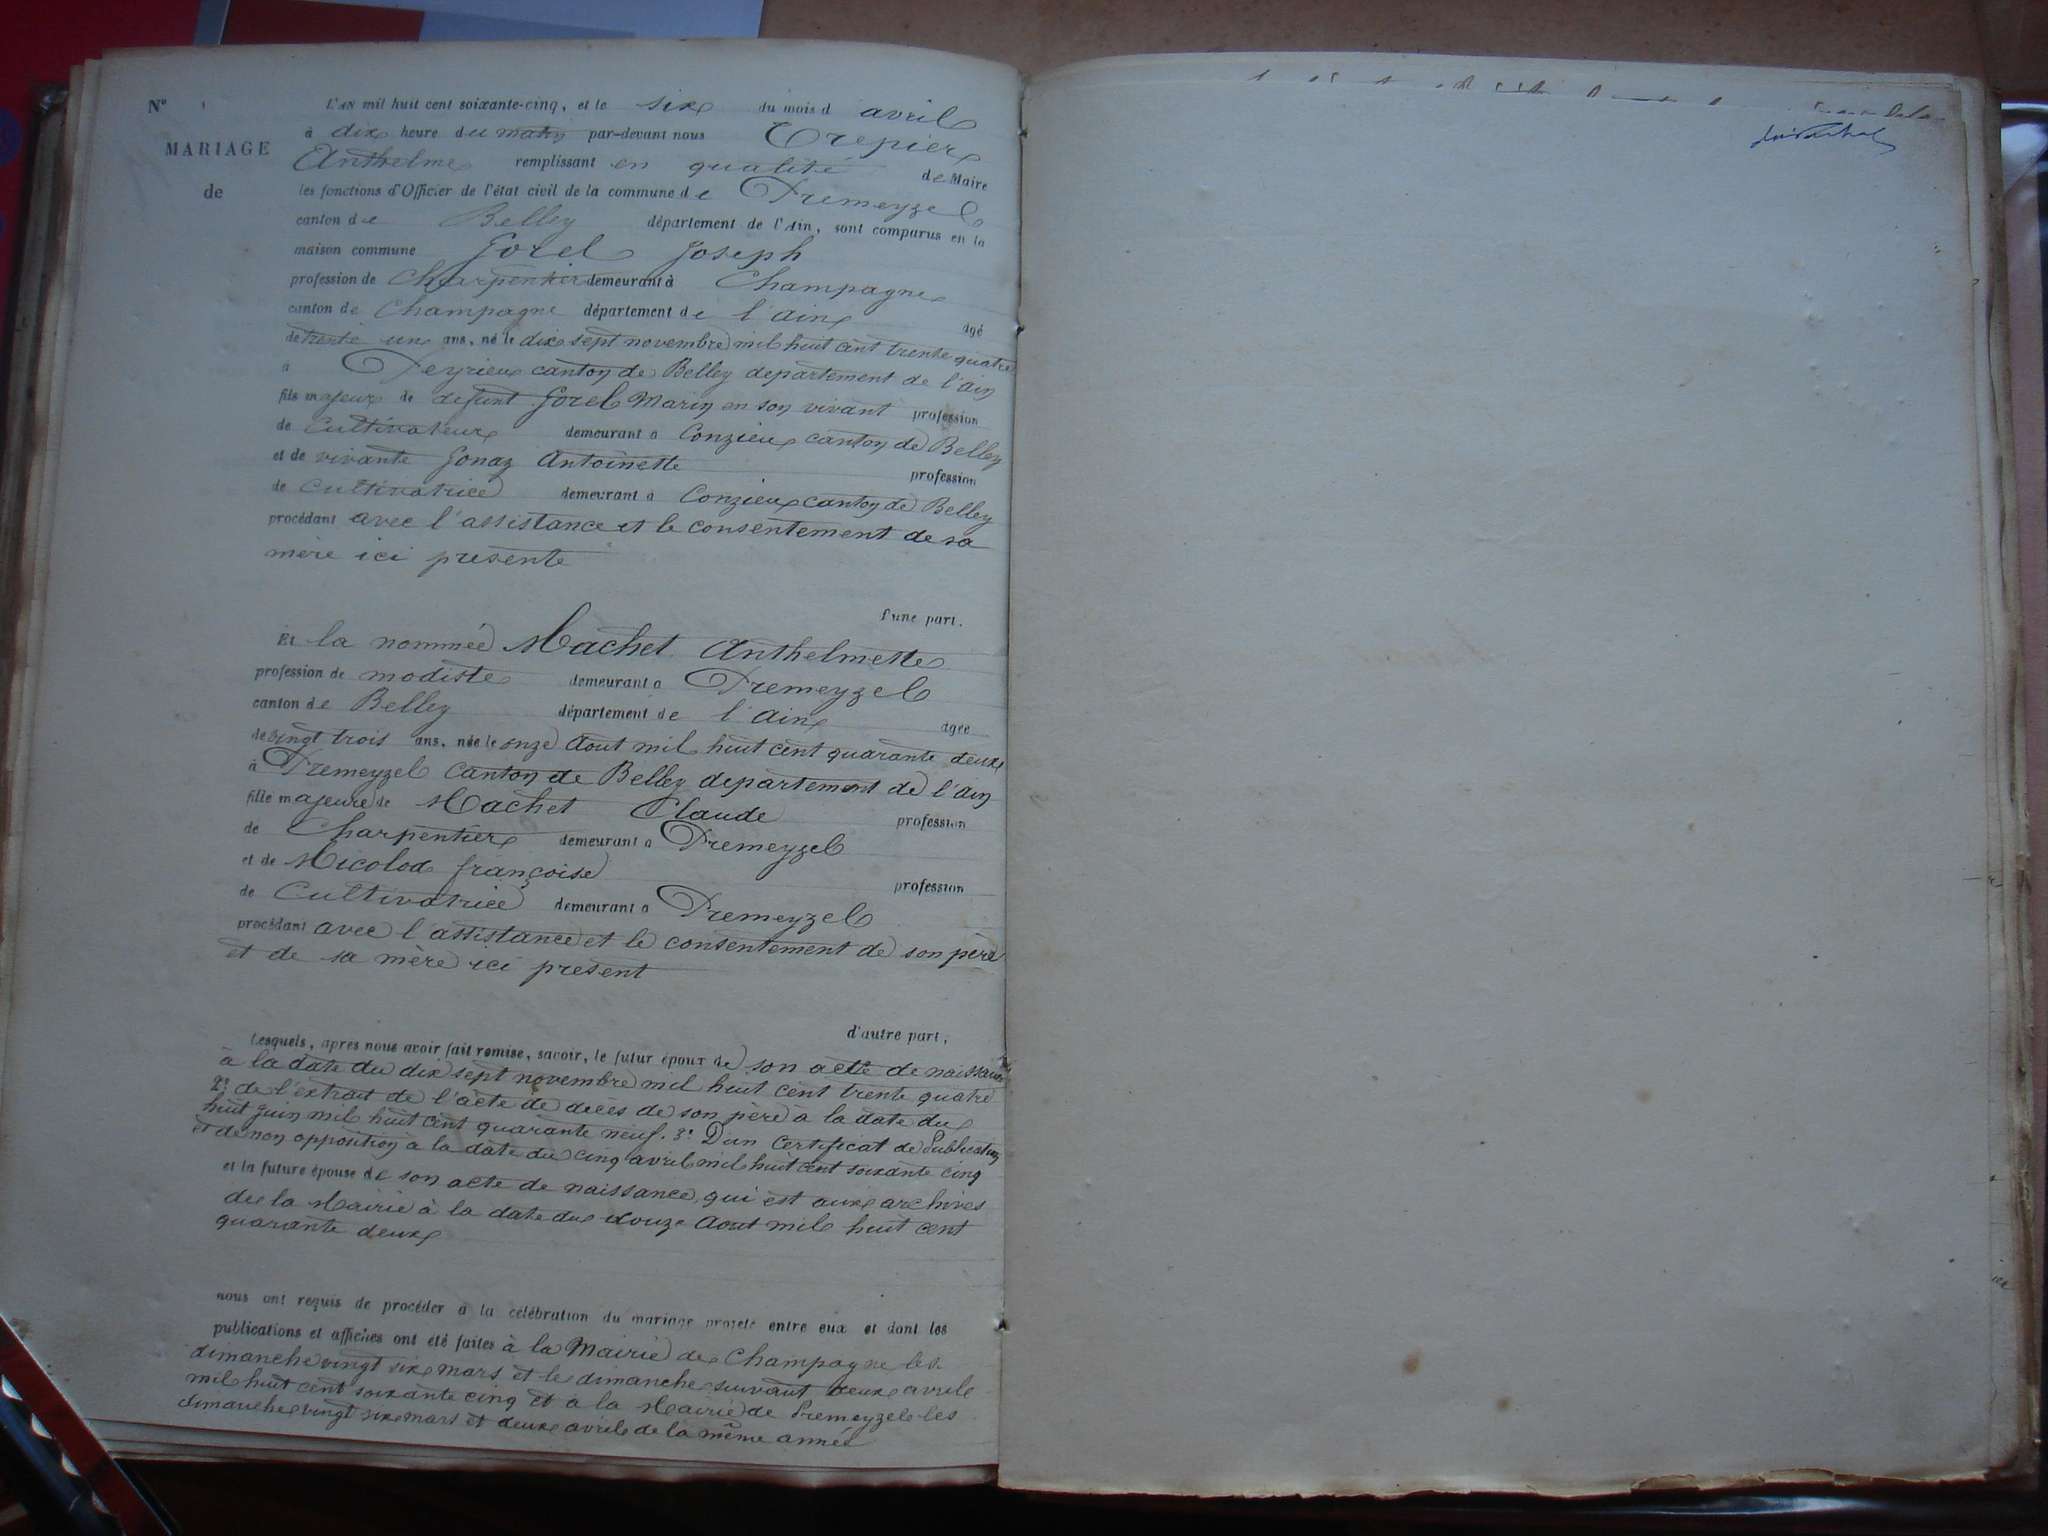 N°
MARIAGE
de
L'AN mil huit cent soixante-cinq, et le six du mois d avril
à dix heure du matin par-devant nous Trepier
Anthelme remplissant en qualité de Maire
les fonctions d'Officier de l'état civil de la commune de Premeyzel
canton de Belley département de l'Ain, sont comparus en la
maison commune Gorel Joseph
profession de Charpentier demeurant à Champagne
canton de Champagne département de l'ain agé
de trente un ans, né le dix sept novembre mil huit cent trente quatre
à Peyrieux canton de Belley departement de l'ain
fils majeur de defunt Gorel Marin en son vivant profession
de Cultivateur demeurant a Conzieux canton de Belley
et de vivante Gonaz Antoinette profession
de Cultivatrice demeurant a Conzieux canton de Belley
procédant avec l'assistance et le consentement de sa
mère ici presente
l'une part.
Et la nommée Machet Anthelmette
profession de modiste demeurant a Premeyzel
canton de Belley département de l'ain agée
de vingt trois ans, née le onze Aout mil huit cent quarante deux
à Premeyzel Canton de Belley departement de l'ain
fille majeure de Machet Claude profession
de Charpentier demeurant a Premeyzel
et de Nicolod françoise profession
de Cultivatrice demeurant a Premeyzel
procédant avec l'assistance et le consentement de son père
et de sa mère ici present
d'autre part,
Lesquels, après nous avoir fait remise, savoir, le futur époux de son acte de naissance
à la date du dix sept novembre mil huit cent trente quatre
2° de l'extrait de l'acte de décès de son père à la date du
huit juin mil huit cent quarante neuf. 3° D'un Certificat de Publication
et de non opposition a la date du cinq avril mil huit cent soixante cinq
et la future épouse de son acte de naissance, qui est aux archives
de la Mairie à la date du douze Aout mil huit cent
quarante deux
nous ont requis de procéder à la célébration du mariage projeté entre eux et dont les
publications et affiches ont été faites à la Mairie de Champagne les
dimanche vingt six mars et le dimanche suivant deux avril
mil huit cent soixante cinq et a la Mairie de Premeyzel les
dimanche vingt six mars et deux avril de la même année